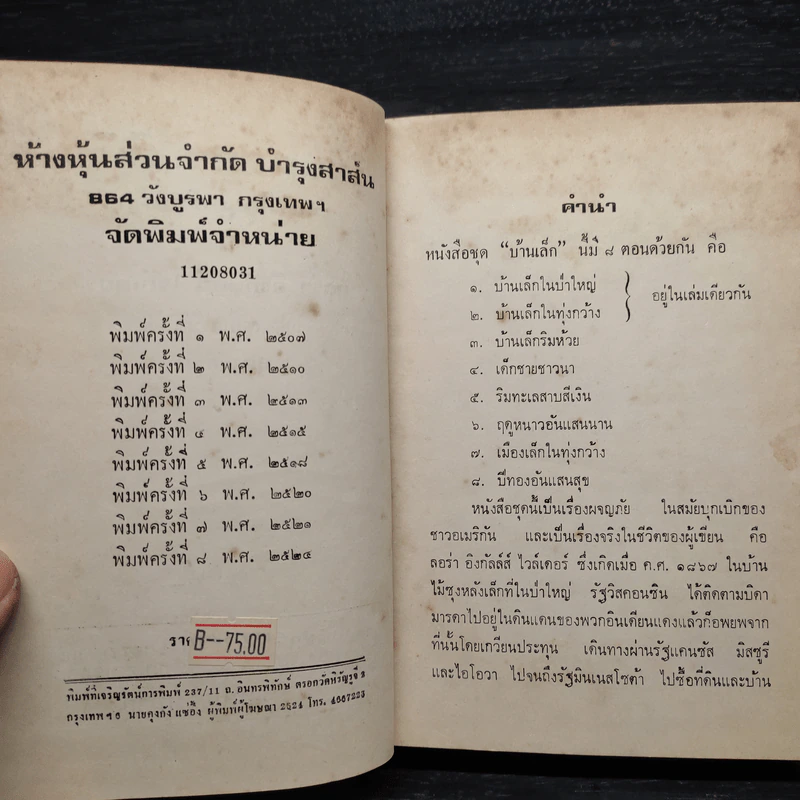 ห้างหุ้นส่วนจำกัด บำรุงสาส์น
864 วังบูรพา กรุงเทพฯ
จัดพิมพ์จำหน่าย
11208031
พิมพ์ครั้งที่ ๑ พ.ศ. ๒๕๐๗
พิมพ์ครั้งที่ ๒ พ.ศ. ๒๕๑๐
พิมพ์ครั้งที่ ๓ พ.ศ. ๒๕๑๓
พิมพ์ครั้งที่ ๔ พ.ศ. ๒๕๑๕
พิมพ์ครั้งที่ ๕ พ.ศ. ๒๕๑๘
พิมพ์ครั้งที่ ๖ พ.ศ. ๒๕๒๐
พิมพ์ครั้งที่ ๗ พ.ศ. ๒๕๒๑
พิมพ์ครั้งที่ ๘ พ.ศ. ๒๕๒๔
รา B--75.00
พิมพ์ที่เจริญรัตน์การพิมพ์ 237/11 ถ. อินทรพิทักษ์ ตรอกวัดหิรัญรูจี 2
กรุงเทพฯ 6 นายคุงกัง แซ่อึ้ง ผู้พิมพ์ผู้โฆษณา 2524 โทร. 4667223
คำนำ
หนังสือชุด “บ้านเล็ก” นี้มี ๘ ตอนด้วยกัน คือ
๑. บ้านเล็กในป่าใหญ่
๒. บ้านเล็กในทุ่งกว้าง
อยู่ในเล่มเดียวกัน
๓. บ้านเล็กริมห้วย
๔. เด็กชายชาวนา
๕. ริมทะเลสาบสีเงิน
๖. ฤดูหนาวอันแสนนาน
๗. เมืองเล็กในทุ่งกว้าง
๘. ปีทองอันแสนสุข
หนังสือชุดนี้เป็นเรื่องผจญภัย ในสมัยบุกเบิกของ
ชาวอเมริกัน และเป็นเรื่องจริงในชีวิตของผู้เขียน คือ
ลอร่า อิงกัลล์ส์ ไวล์เดอร์ ซึ่งเกิดเมื่อ ค.ศ. ๑๘๖๗ ในบ้าน
ไม้ซุงหลังเล็กที่ในป่าใหญ่ รัฐวิสคอนซิน ได้ติดตามบิดา
มารดาไปอยู่ในดินแดนของพวกอินเดียนแดงแล้วก็อพยพจาก
ที่นั้นโดยเกวียนประทุน เดินทางผ่านรัฐแคนซัส มิสซูรี
และไอโอวา ไปจนถึงรัฐมินเนสโซต้า ไปซื้อที่ดินและบ้าน